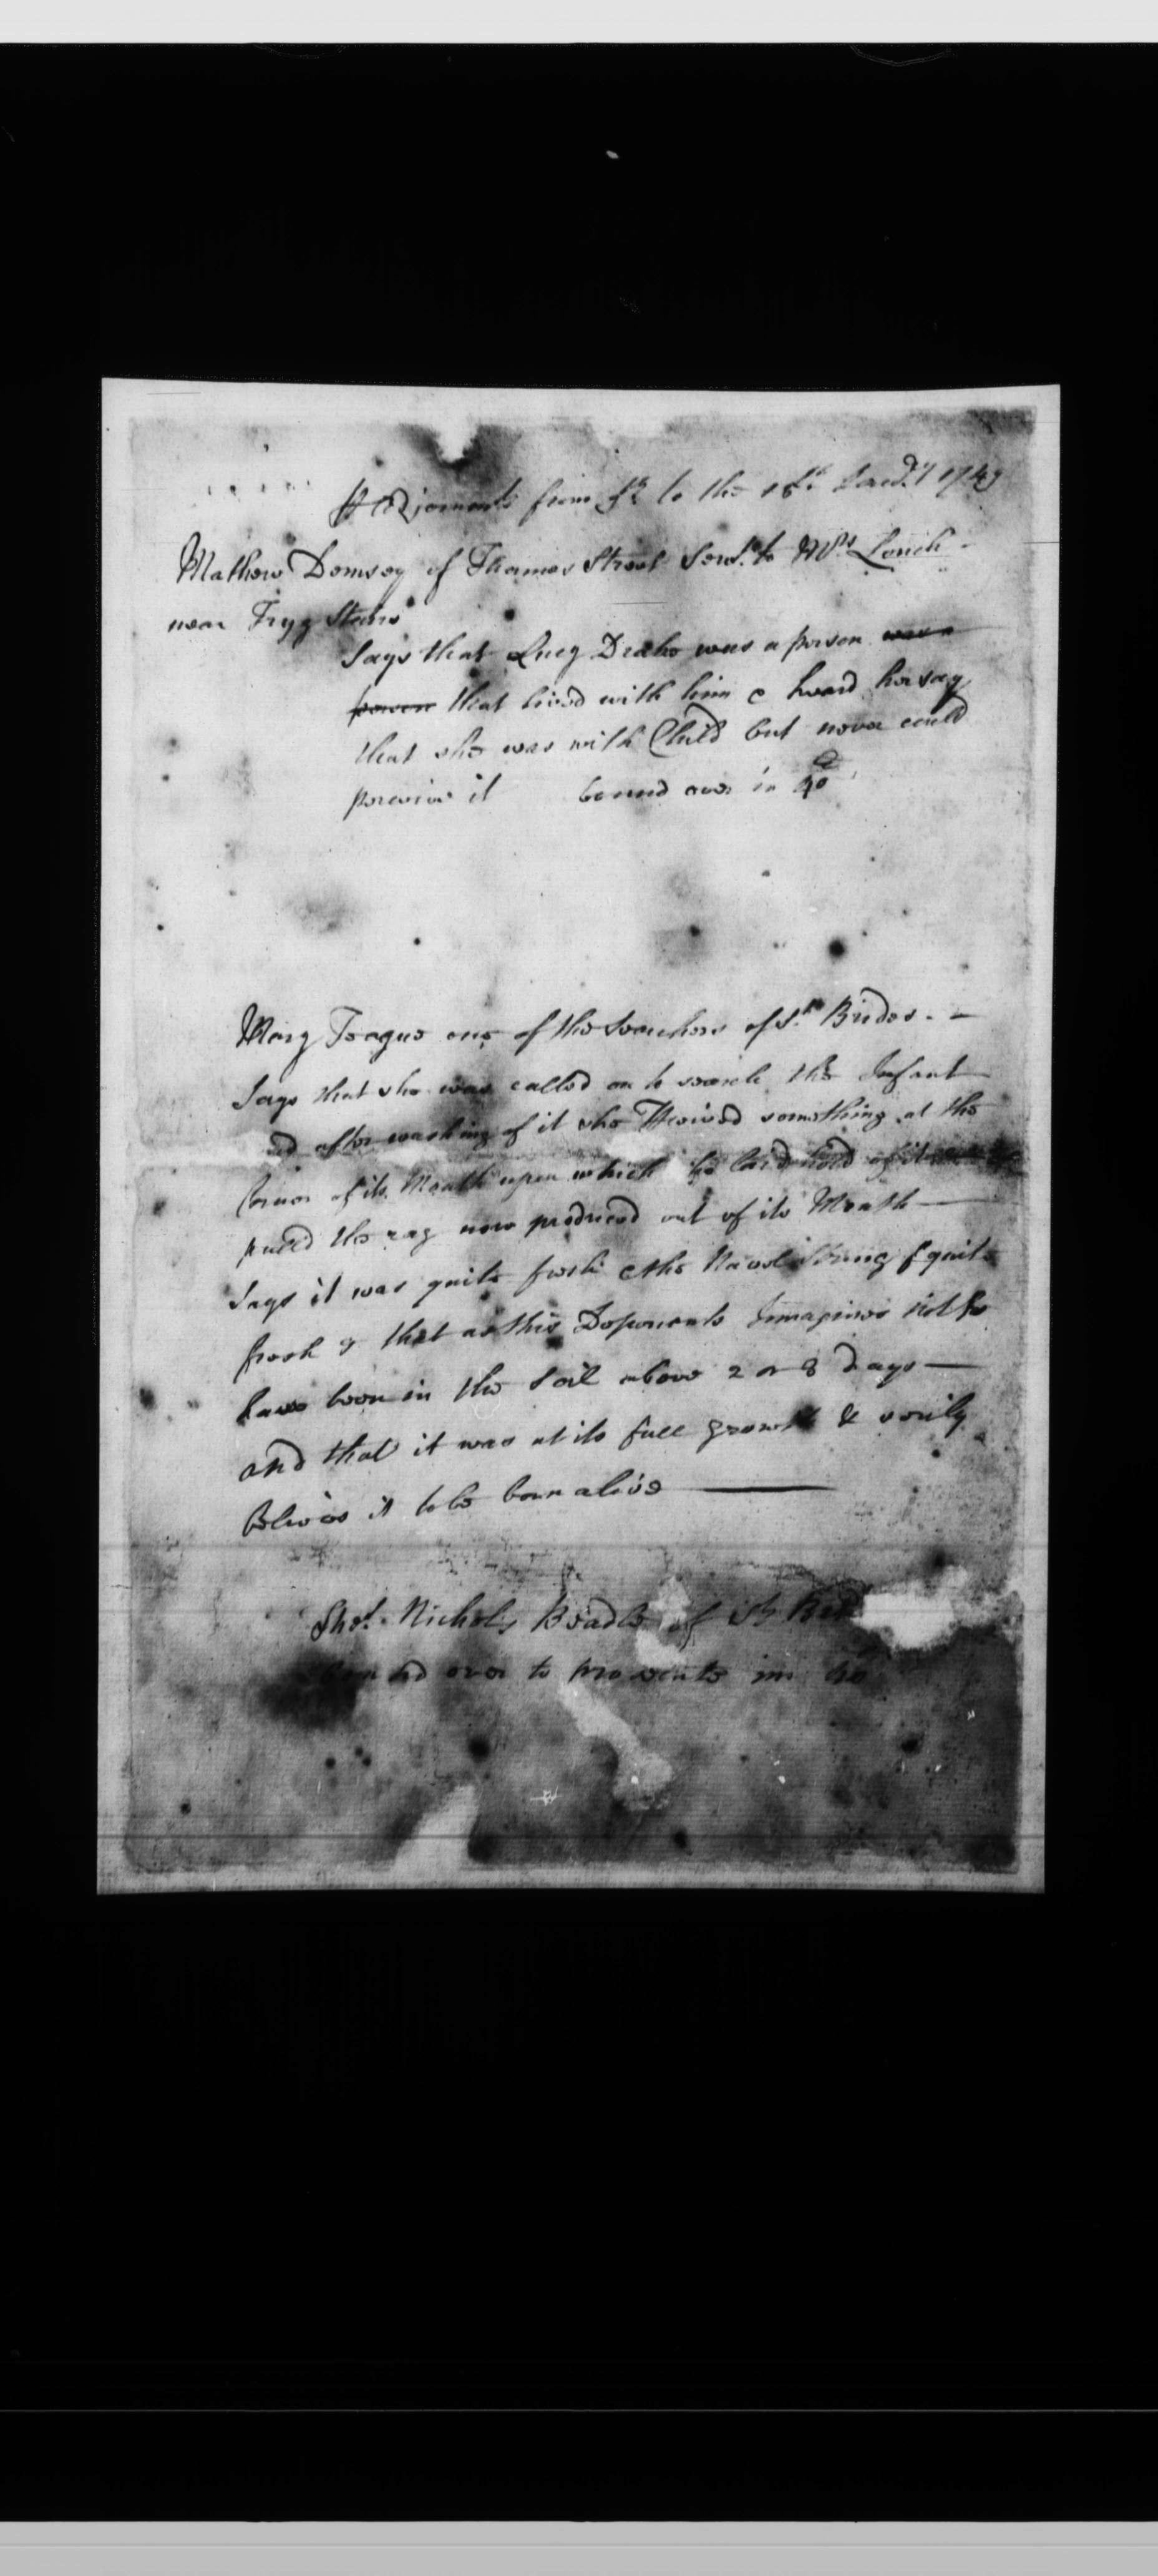 Adjornment from ye to the 18th 1747
Mathew Demsey of Thames Street Servt. to Mrs Leach
near Fryg Stairs
Says that Lucy Drake was a person was a
person that lived with him & heard her say
that she was with Child but never could
perceive it bound over in 40
Mary Teague one of the Searchers of St. Brides. —
Says that she was called on to search the Infant
and after washing of it she P'ceived something at the
Corner of its Mouth upon which he laid hold of it
pulld the rag now produced out of its Mouth —
Says it was quite fresh & the Navel String quite
fresh & that as this Deponents Immagines not to
have been in the Soil above 2 or 3 days —
and that it was at its full growth & verily
Belives it to be born alive —
Thos. Nichols Beadle of St Brid
bound over to prosecute in 40